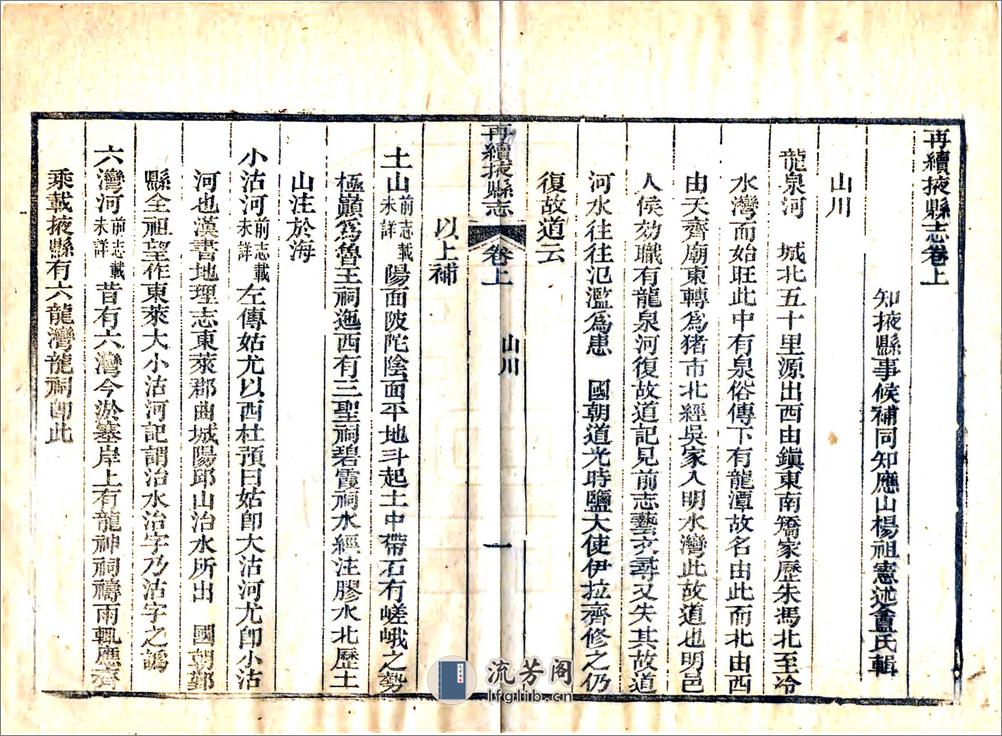 再續掖縣志卷上
知掖縣事候補同知應山楊祖憲述畬氏輯
山川
龍泉河 城北五十里源出西由鎮東南矯家歷朱馮北至冷
水灣而始旺此中有泉俗傳下有龍潭故名由此而北由西
由天齊廟東轉為猪市北經吳家入明水灣此故道也明邑
人侯効職有龍泉河復故道記見前志藝文尋又失其故道
河水往往氾濫為患 國朝道光時鹽大使伊拉齊修之仍
復故道云
再續掖縣志 卷上 山川 一
以上補
土山前志載未詳陽面陂陀陰面平地斗起土中帶石有嵯峨之勢
極巔為魯王祠迤西有三聖祠碧霞祠水經注膠水北歷土
山注於海
小沽河前志載未詳左傳姑尤以西杜預曰姑卽大沽河尤卽小沽
河也漢書地理志東萊郡曲城陽邱山治水所出 國朝鄞
縣全祖望作東萊大小沽河記謂治水治字乃沽字之譌
六灣河前志載未詳昔有六灣今淤塞岸上有龍神祠禱雨輒應齊
乘載掖縣有六龍灣龍祠卽此
流芳阁
lfglib.cn